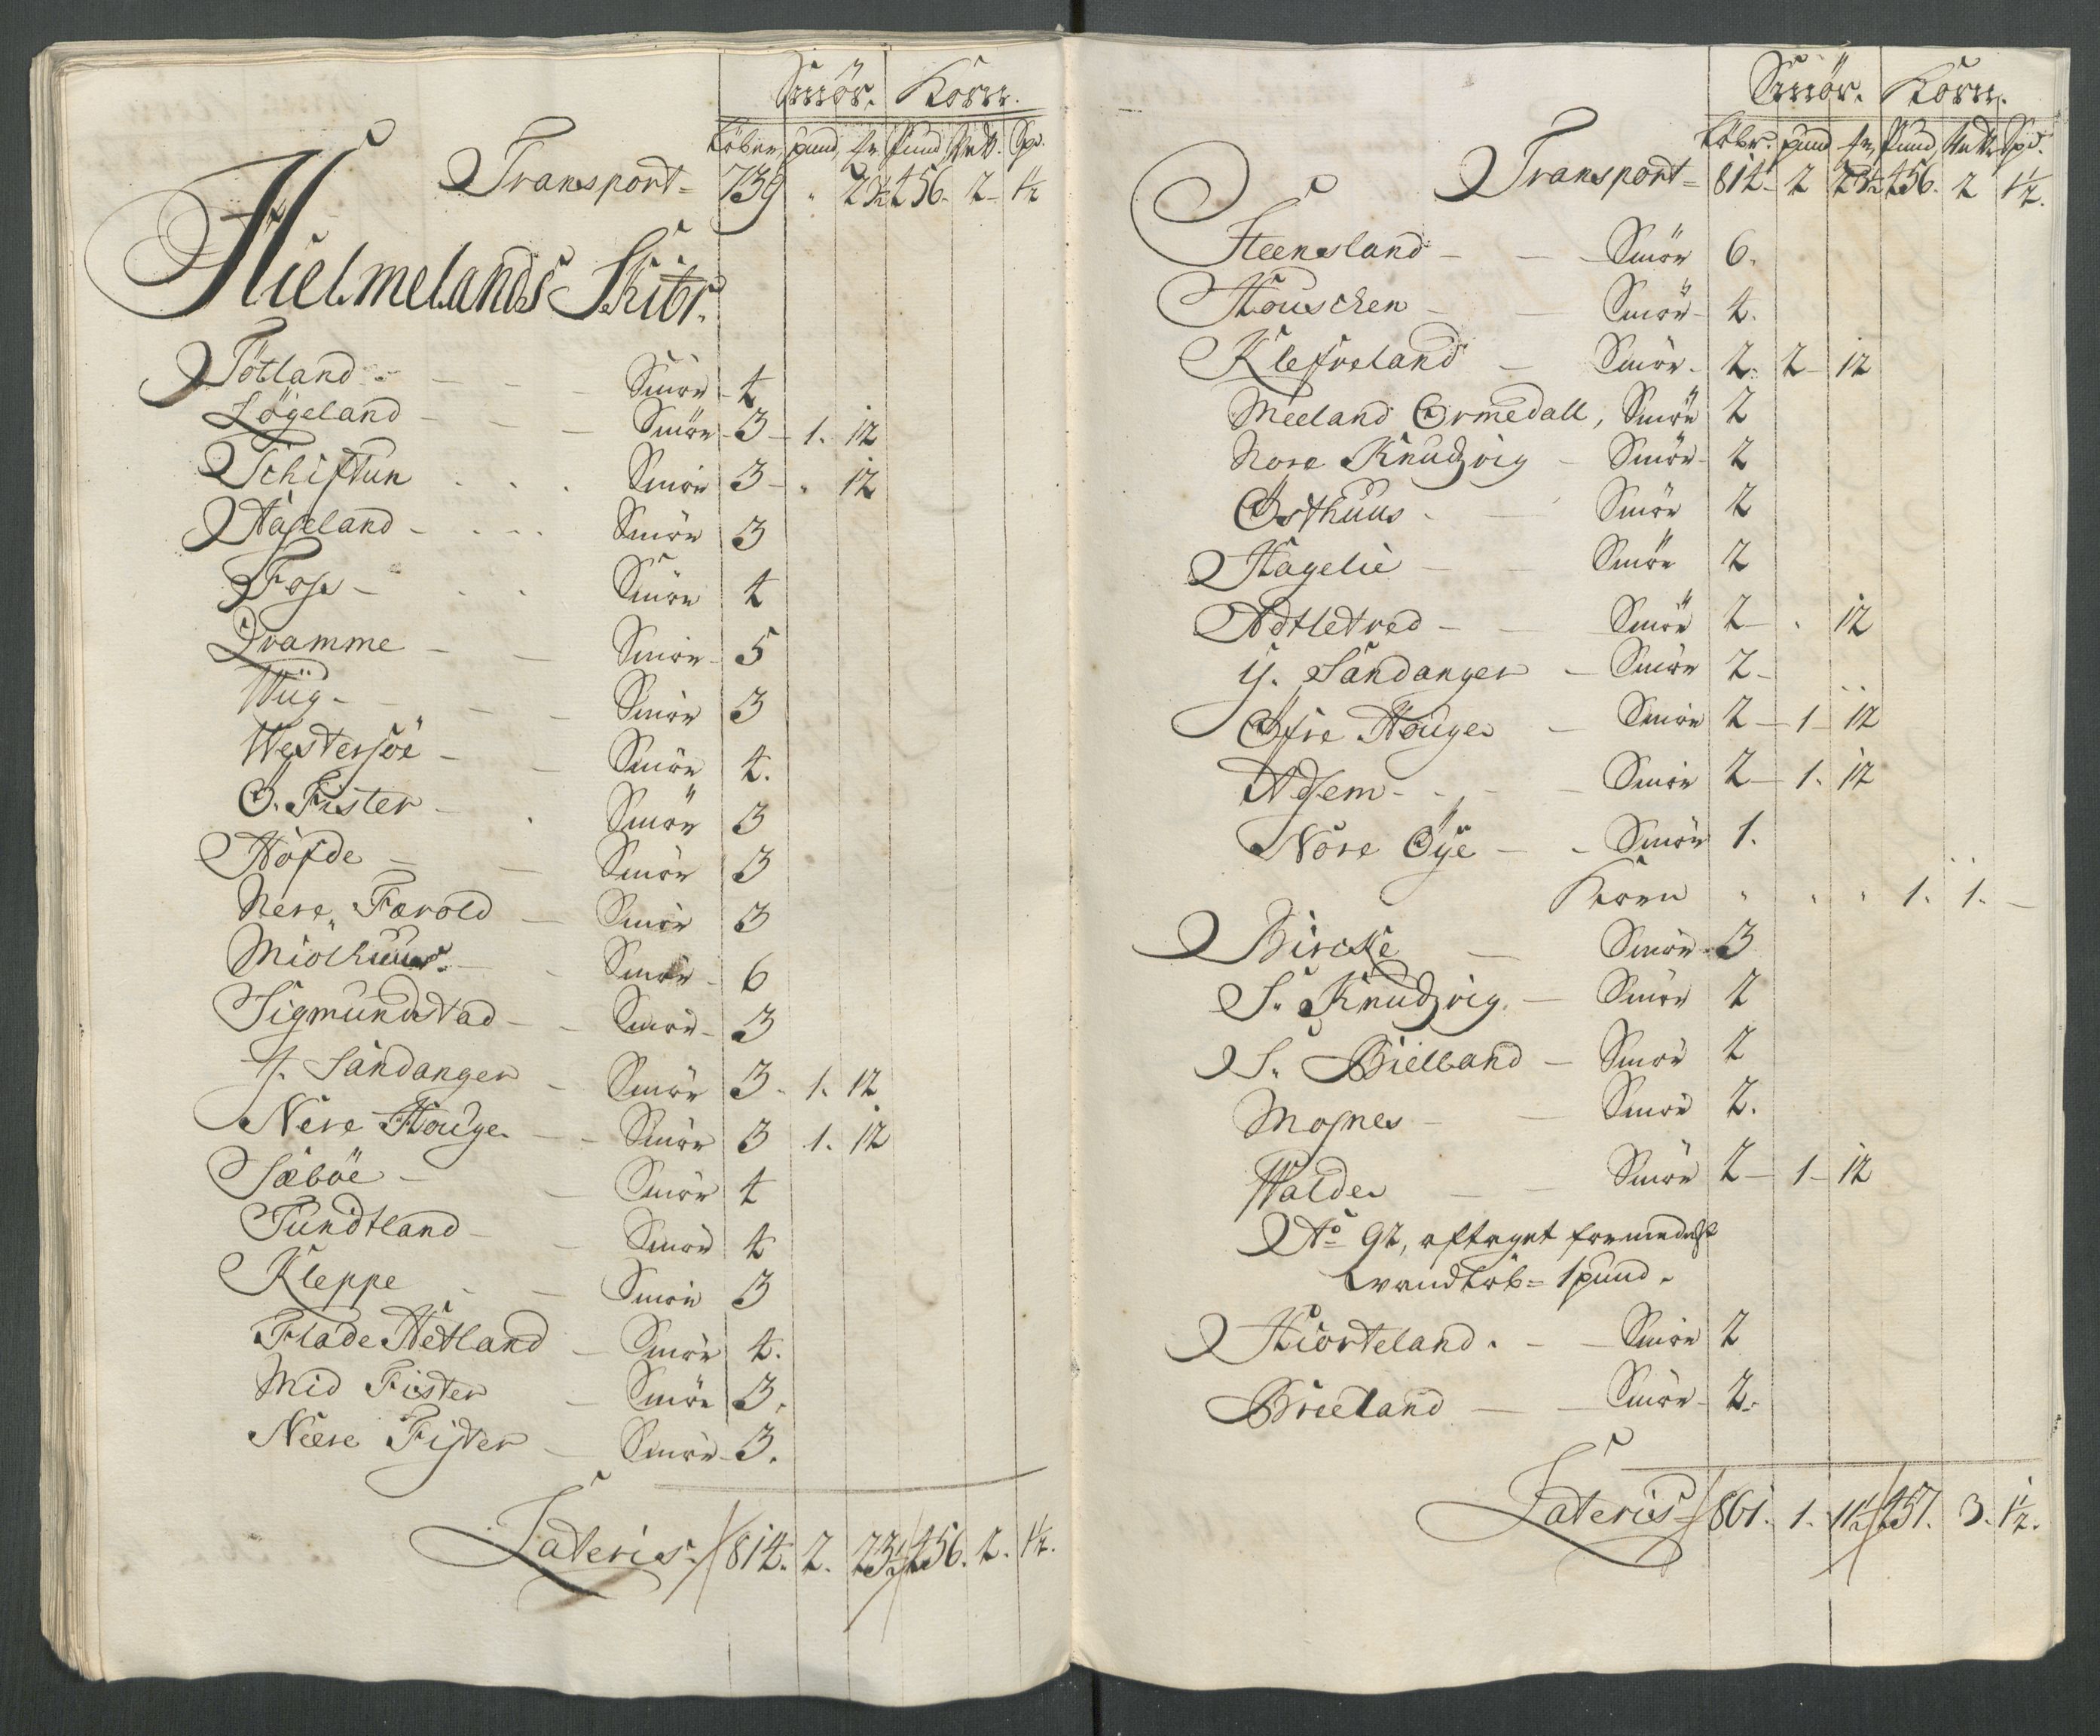 Smör. Korn.
Löber, pund, Pund, Vett. Spd.
Transport - 739 " 23½ 456. 2 - 1½
Hielmelands Skibr.
Tötland - - - Smör - 4
Lögeland - - - Smör - 3 - 1. 12
Schiftun . . . Smör 3 - " 12
Haseland - . . . Smör 3
Foss - . . Smör 4
Dramme - - Smör - 5
Wiig - - - - Smör 3
Westersöe - - Smör 4.
Ö. Fister - . Smör 3
Höfde - - Smör 3
Nere Færold - Smör 3
Miölhuus - - Smör - 6
Sigmundstad - - Smör - 3
Y. Sandanger - Smör 3 - 1. 12
Nere Houge - - Smör 3 1. 12
Sæböe - - Smör 4
Tundtland - - Smör 4
Kleppe - - Smör 3
Flade Hetland - Smör 4.
Mid Fister - Smör 3.
Neere Fister - Smör - 3.
Lateris 814. 2. 23½ 456. 2. 1½.
Smör. Korn.
Löber. pund Pund, Vett. Spd.
Transport - 814 - 2 23½ 456. 2 1½.
Steensland - - - Smör 6.
Houschen - - Smör - 4.
Klefveland - Smör - 2. 2 - 12
Meeland Ormedall, Smör 2
Nore Knudzvig - Smör - 2
Östhuus - - Smör 2
Hagelie - - Smör 2
Adtletred - - Smör 2 - . 12
Y. Sandanger - Smör 2 -
Öfre Houge - Smör 2 - 1 - 12
Adsem - - - - Smör 2 - 1. 12
Nore Öye - - Smör 1.
Korn " " " 1. 1. -
Bircke - Smör 3
S. Knudzvig - Smör 2
S. Bielland - Smör 2
Mosnes - - Smör 2.
Walde - - Smör 2 - 1 - 12
Ao 92, aftaget formedelst
1 pund.
Hiorteland. - - Smör 2
Brieland - - Smör - 2.
Lateris 861. 1. 11½ 457. 3. 1½.